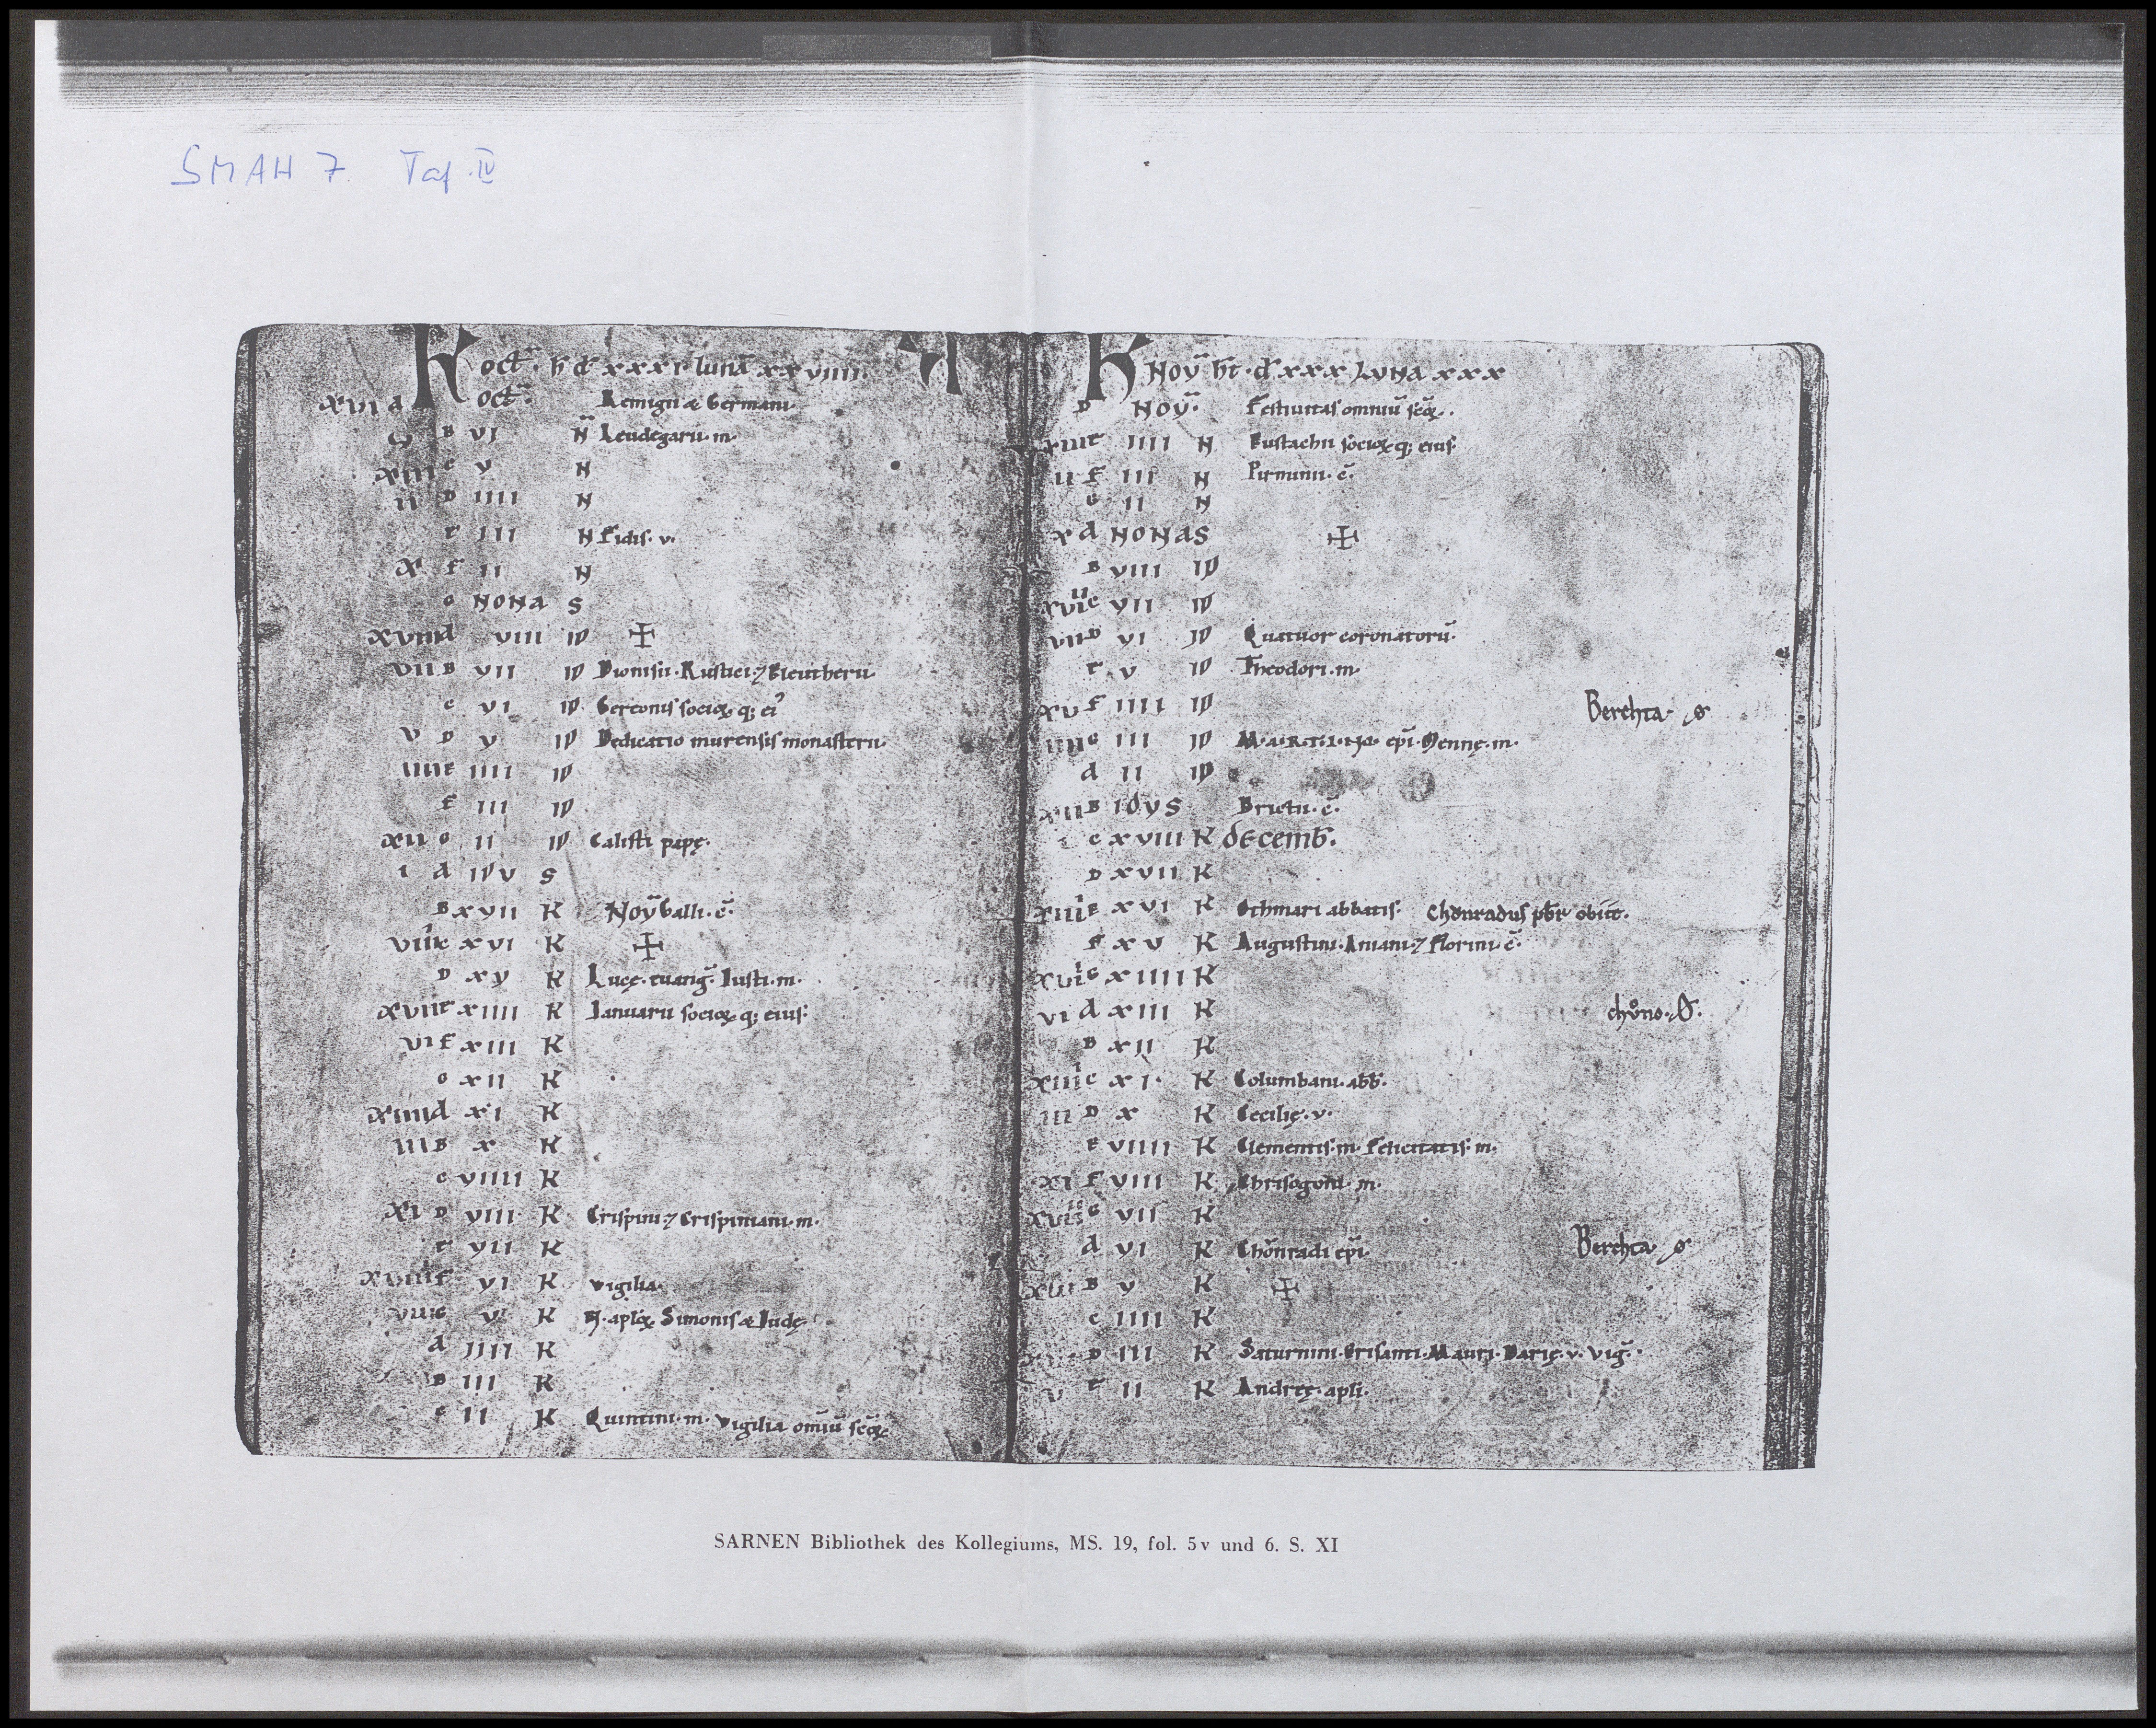 SMAH 7. Taf. IV
K oct̄. h d xxxi luna xxviiii.
xvi a oct̄. Remigii & Germani
B VI N Leudegarii. m.
xiii c V N
ii D IIII N
e III N Fidis. v.
x f II N
G NONA S
xviii d VIII ID ✠
vii B VII ID Dionisii. Rustici. ⁊ Eleutherii.
c VI ID Gereonis socioꝝ q; ei᾿
v D V ID Dedicatio murensis monasterii.
iiii e IIII ID
f III ID
xii G II ID Calisti papę.
i a IDV S
B XVII K Nov̄ Galli. c̄.
viiii c XVI K ✠
D XV K Lucę. euang̅. Iusti. m.
xvii e XIIII K Ianuarii socioꝝ q; eius.
vi f XIII K
G XII K
xiiii d XI K
iii B X K
c VIIII K
xi D VIII K Crispini ⁊ Crispiniani. m.
e VII K
xviiii f VI K vigilia.
viii G V K N. aploꝝ Simonis & Iudę
d IIII K
B III K
c II K Quintini. m. vigilia omiū scōꝝ
K Nov̄ ht. d xxx Luna xxx
D Nov̄. Festiuitas omniū scōꝝ.
xiii e IIII N Eustachii socioꝝ q; eius.
ii f III N Pirminii. c̄.
G II N
x d NONAS ✠
B VIII ID
c VII ID
vii D VI ID Quatuor coronatorū.
e V ID Theodori. m.
xv f IIII ID Berchta
iiii G III ID MARTINI epi. Mennę. m.
d II ID
xii B IDVS Brictii. c̄.
c XVIII K decemb.
D XVII K
e XVI K Othmari abbatis. Chǒnradus pbr obiit.
f XV K Augustini. Aniani ⁊ Florini c̄.
G XIIII K
vi d XIII K chǒno.
B XII K
c XI K Columbani. abb.
iii D X K Cecilię. v.
e VIIII K Clementis. m. Felicitatis. m.
xi f VIII K Chrisogoni. m.
G VII K
d VI K Chǒnradi epi. Berchta
B V K ✠
c IIII K
D III K Saturnini. Crisanti. Mauri. Darię. v. vig̅.
v e II K Andreę. apli.
SARNEN Bibliothek des Kollegiums, MS. 19, fol. 5v und 6. S. XI